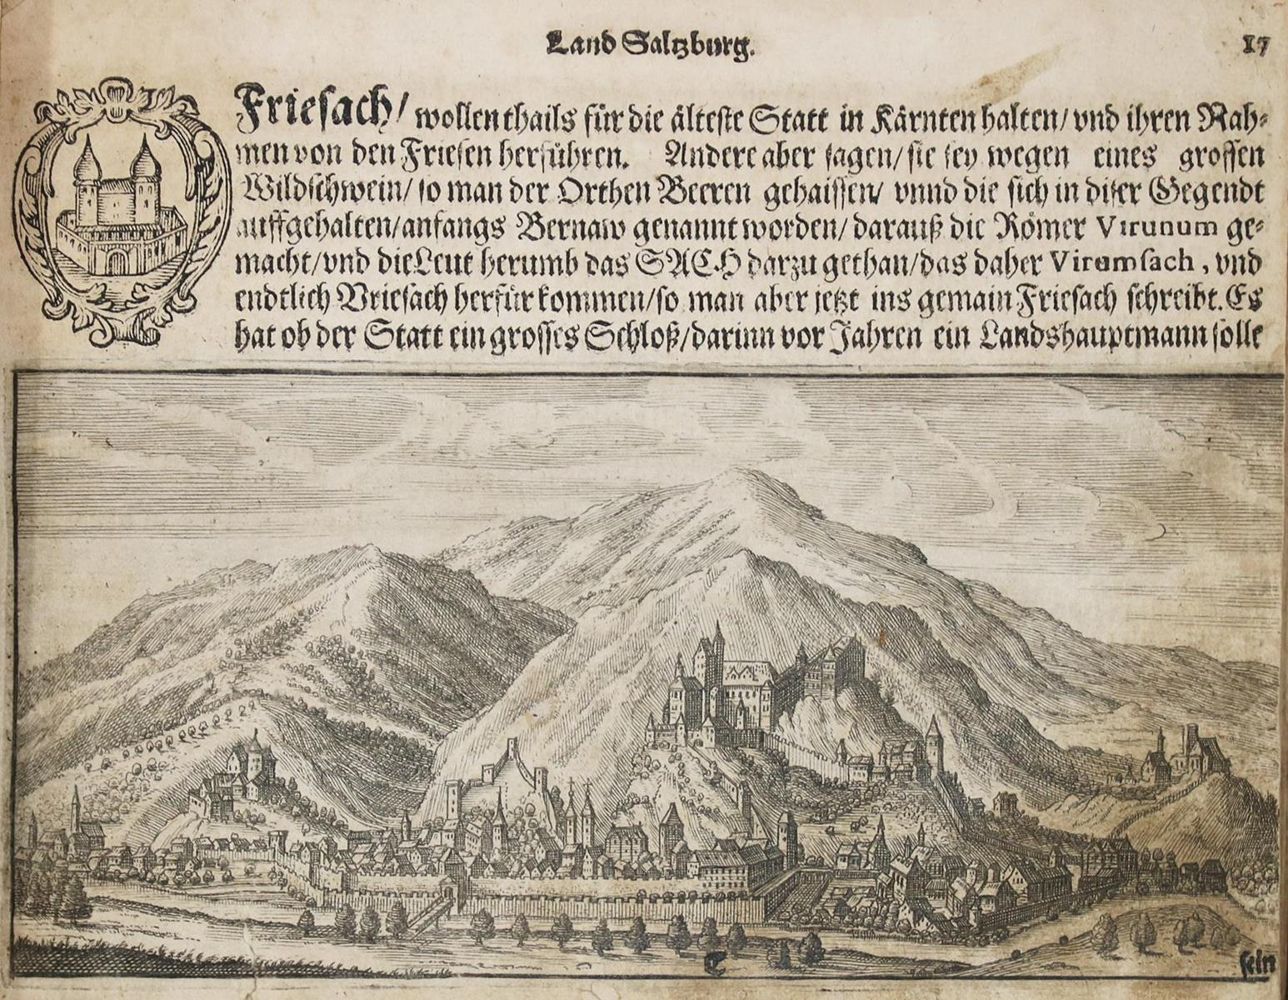 Land Saltzburg.
17
Friesach/ wollen thails für die älteste Statt in Kärnten halten/ vnd ihren Nah⸗
men von den Friesen herführen. Andere aber sagen/ sie sey wegen eines grossen
Wildschwein/ so man der Orthen Beeren gehaissen/ vnnd die sich in diser Gegendt
auffgehalten/ anfangs Bernaw genannt worden/ darauß die Römer Virunum ge⸗
macht/ vnd die Leut herumb das SACH darzu gethan/ das daher Virumsach, vnd
endtlich Vriesach herfür kommen/ so man aber jetzt ins gemain Friesach schreibt. Es
hat ob der Statt ein grosses Schloß/ darinn vor Jahren ein Landshauptmann solle
C
sein